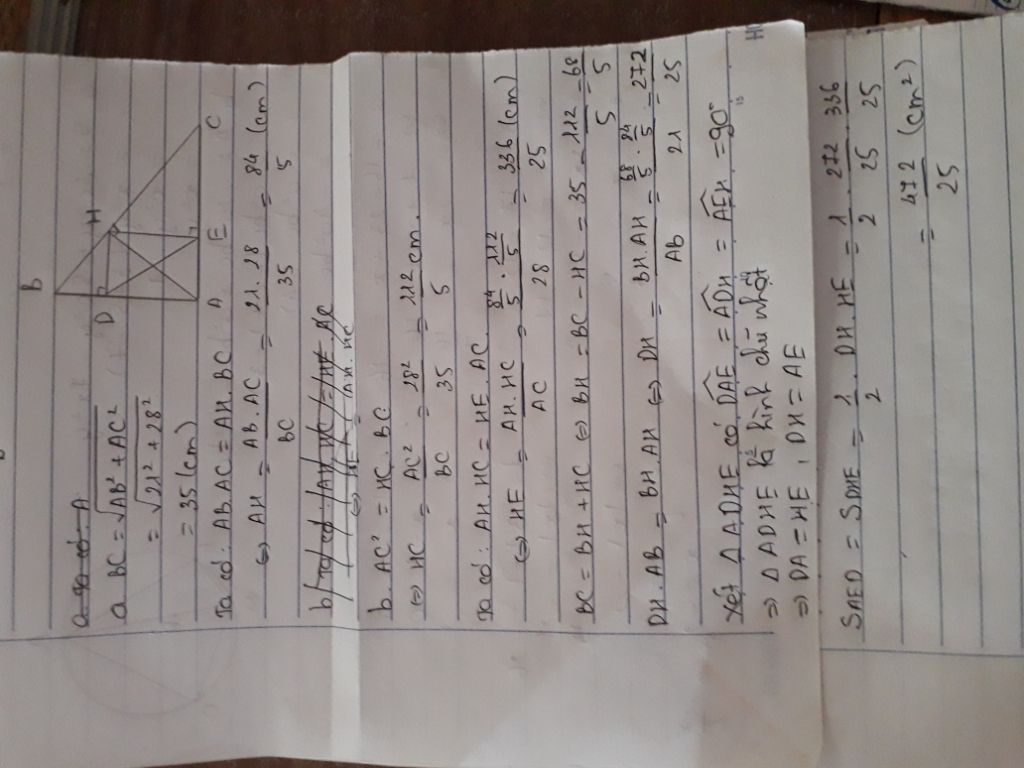 B
H
D
A E C
a. BC = √(AB² + AC²)
= √(21² + 28²)
= 35 (cm)
Ta có: AB.AC = AH.BC
⇔ AH = AB.AC/BC = 21.28/35 = 84/5 (cm)
b. AC² = HC.BC
⇔ HC = AC²/BC = 28²/35 = 112/5 cm.
Ta có: AH.HC = HE.AC
⇔ HE = AH.HC/AC = (84/5 . 112/5)/28 = 336/25 (cm)
BC = BH + HC ⇔ BH = BC - HC = 35 - 112/5 = 68/5
DH.AB = BH.AH ⇔ DH = BH.AH/AB = (68/5 . 84/5)/21 = 272/25
Xét Δ ADHE có: DAE = ADH = AEH = 90°
⇒ Δ ADHE là hình chữ nhật
⇒ DA = HE, DH = AE
SAED = SDHE = 1/2 . DH.HE = 1/2 . 272/25 . 336/25
= 472/25 (cm²)